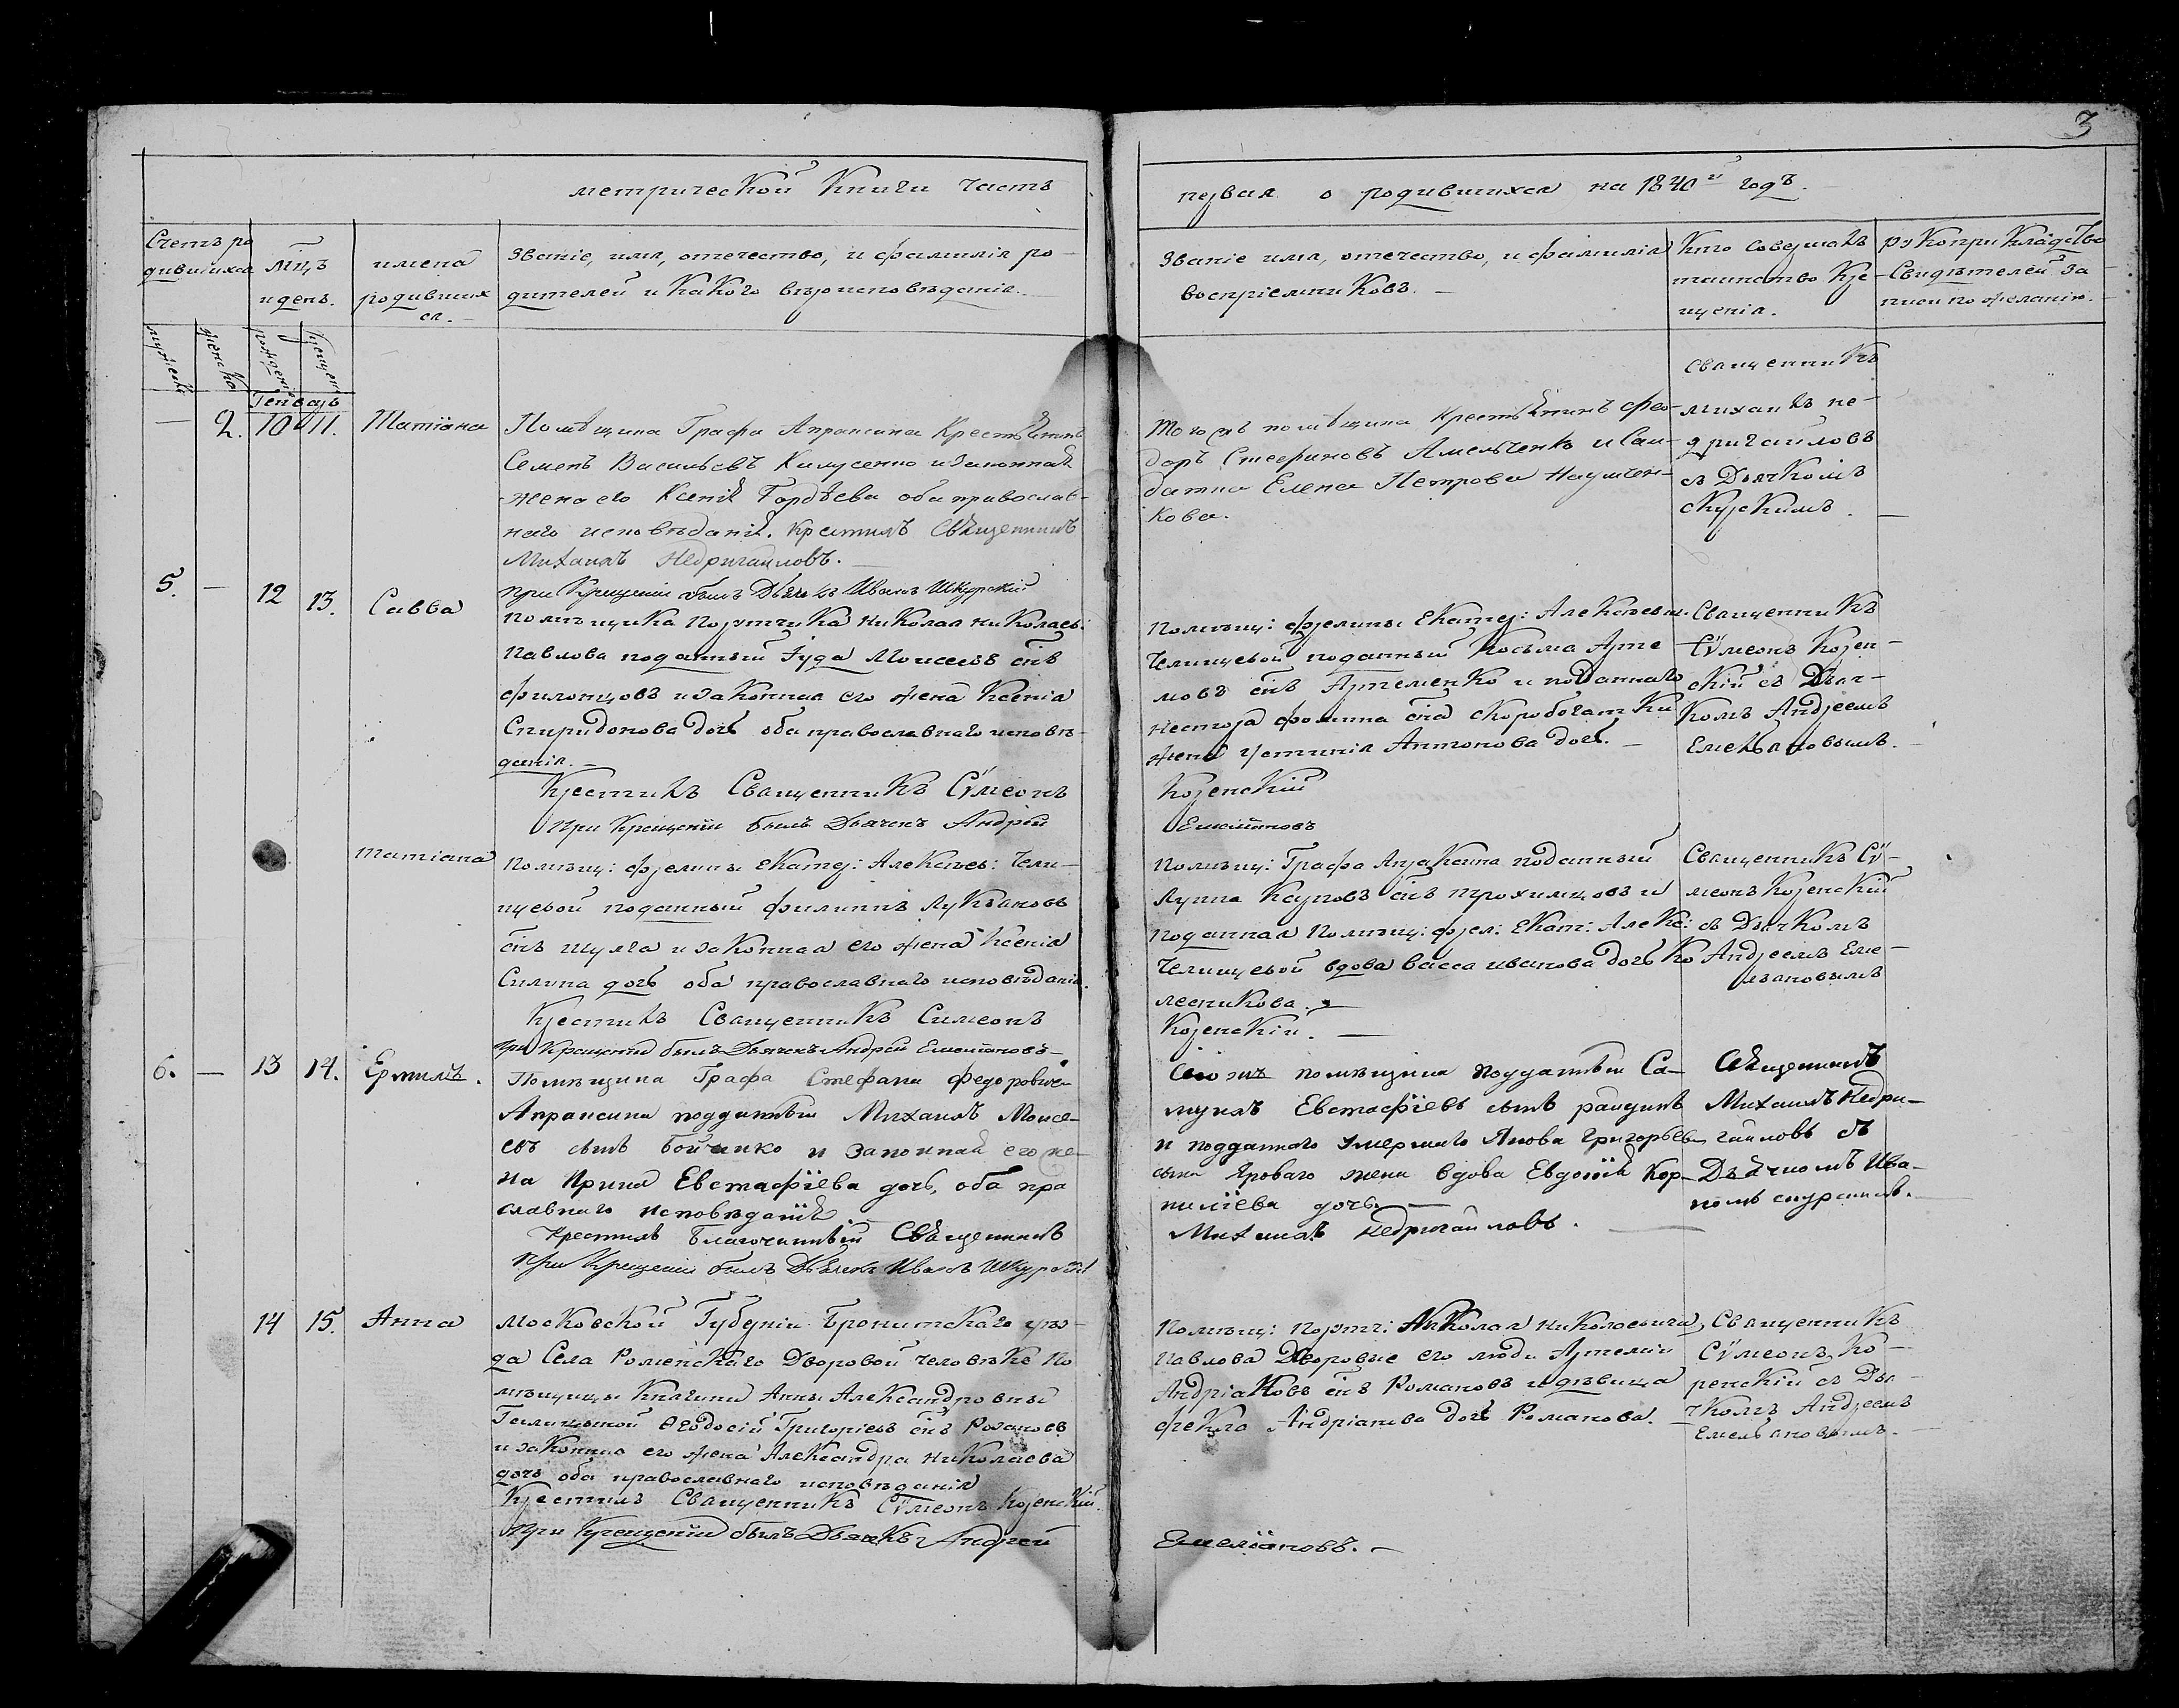 3
метрической Книги часть
первая о родившихся на 1840й годъ.
Счетъ ро
дившихся
мц̃ъ
и день.
имена
родивших
ся.
Званіе, имя, отечество, и фамилія ро-
дителей и какого вѣроисповѣданія.
Званіе имя, отечество, и фамилія
воспріемниковъ.
Кто совершалъ
таинство Кре-
щенія.
рукоприкладство
Свидѣтелей за
писи по желанію.
мужеска
женска
рожденія
Крещен
Генварь
— 2. 10 11. Татіана
Помѣщика Графа Апраксина Крестьянинъ
Семенъ Васильевъ и законная
жена его Ксенія Гордѣева оба православ-
наго исповѣданія. Крестилъ Священникъ
Михаилъ Недригайловъ.
При Крещеніи былъ Дьячекъ Иванъ Шкурскій
Того жъ помѣщика Крестьянинъ Фео-
доръ Стефановъ Амельченко и
Елена Петрова Науменкова.
Священникъ
Михаилъ Не-
дригайловъ
съ Дьячкомъ
Скурскимъ.
5. — 12 13. Савва
помѣщика Поручика Николая Николаев:
Павлова поданный Іуда Моисеевъ сн̃ъ
Филонцовъ и законная его жена Ксенія
Спиридонова дочь оба православнаго исповѣ-
данія.
Крестилъ Священникъ Сѵмеонъ
При Крещеніи былъ Дьячекъ Андрей
Помѣщ: фрелины Екатер: Алексѣевн:
Челищевой поданный Косьма Арте-
мовъ сн̃ъ Артеменко и поданнаго
Нестора Фомина сн̃а Скоробогатки
жена Устинія Антонова дочь.
Коренскій
Емельяновъ
Священникъ
Сѵмеонъ Корен-
скій съ Дьяч-
комъ Андреемъ
Емельяновымъ.
Татіана
Помѣщ: фрелины Екатер: Алексѣев: Чели-
щевой поданный Филиппъ Лукьяновъ
сн̃ъ Шулга и законная его жена Ксенія
Силина дочь оба православнаго исповѣданія.
Крестилъ Священникъ Симеонъ
При Крещеніи былъ Дьячекъ Андрей Емельяновъ
Помѣщ: Графа Апраксина поданный
Луппа Карповъ сн̃ъ Трохимцовъ и
поданная Помѣщ: фрел: Екат: Алекс:
Челищевой вдова Васса Иванова дочь Ко
лесникова.
Коренскій.
Священникъ Сѵ-
меонъ Коренскій
съ Дьячкомъ
Андреемъ Еме-
льяновымъ
6. — 13 14. Ермилъ.
Помѣщика Графа Стефана Федоровича
Апраксина подданный Михаилъ Моисе-
евъ сынъ Бойченко и законная его же-
на Ирина Евстафіева дочь, оба пра
славнаго исповѣданія
Крестилъ Благочинный Священникъ
При Крещеніи былъ Дьячекъ Иванъ Шкурскій
помѣщика подданный Са-
муилъ Евстафіевъ сынъ
и подданнаго умершаго Якова Григорьева
сына Яроваго жена вдова Евдокія Кор-
ниліева дочь.
Михаилъ Недригайловъ.
Священникъ
Михаилъ Недри-
гайловъ съ
Дьячкомъ Ива-
номъ Скурскимъ.
14 15. Анна
Московской Губерніи Бронитскаго уѣз-
да Села Роменскаго Дворовой человѣкъ По
мѣщицы Княгини Анны Александровны
Голицыной Ѳеодосій Григоріевъ сн̃ъ Розановъ
и законная его жена Александра Николаева
дочь оба православнаго исповѣданія
Крестилъ Священникъ Сѵмеонъ Коренскій.
При Крещеніи былъ Дьячекъ Андрей
Помѣщ: поруч: Николая Николаевича
Павлова Дворовые его люди Артемій
Андріановъ сн̃ъ Романовъ и дѣвица
Фекла Андріанова дочь Романова.
Емельяновъ.
Священникъ
Сѵмеонъ Ко-
ренскій съ Дья-
чкомъ Андреемъ
Емельяновымъ.